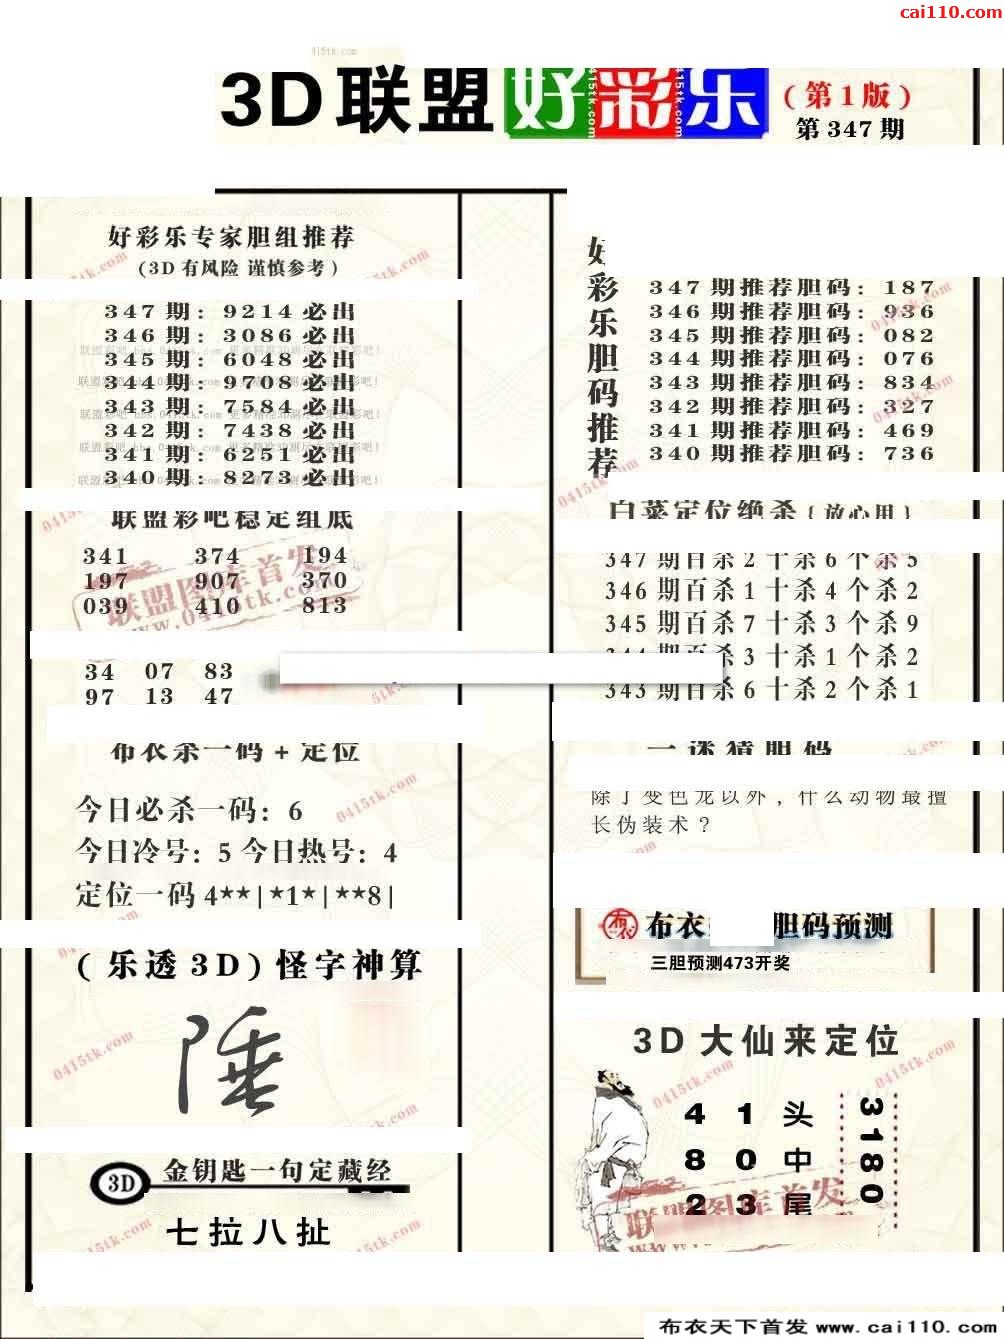 cai110.com
0415tk.com
3D联盟好彩乐
(第1版)
第347期
好彩乐专家胆组推荐
(3D有风险 谨慎参考)
347期: 9214必出
346期: 3086必出
345期: 6048必出
344期: 9708必出
343期: 7584必出
342期: 7438必出
341期: 6251必出
340期: 8273必出
联盟彩吧稳定组底
341 374 194
197 907 370
039 410 813
34 07 83
97 13 47
布衣杀一码+定位
今日必杀一码: 6
今日冷号: 5 今日热号: 4
定位一码4**|*1*|**8|
(乐透3D)怪字神算
陲
3D
金钥匙一句定藏经
七拉八扯
好彩乐胆码推荐
347期推荐胆码: 187
346期推荐胆码: 936
345期推荐胆码: 082
344期推荐胆码: 076
343期推荐胆码: 834
342期推荐胆码: 327
341期推荐胆码: 469
340期推荐胆码: 736
白菜定位绝杀{放心用}
347期百杀2十杀6个杀5
346期百杀1十杀4个杀2
345期百杀7十杀3个杀9
344期百杀3十杀1个杀2
343期百杀6十杀2个杀1
一迷猜胆码
除了变色龙以外，什么动物最擅
长伪装术？
布衣
胆码预测
三胆预测473开奖
3D大仙来定位
4 1 头
8 0 中
2 3 尾
3180
联盟图库首发
布衣天下首发 www.cai110.com